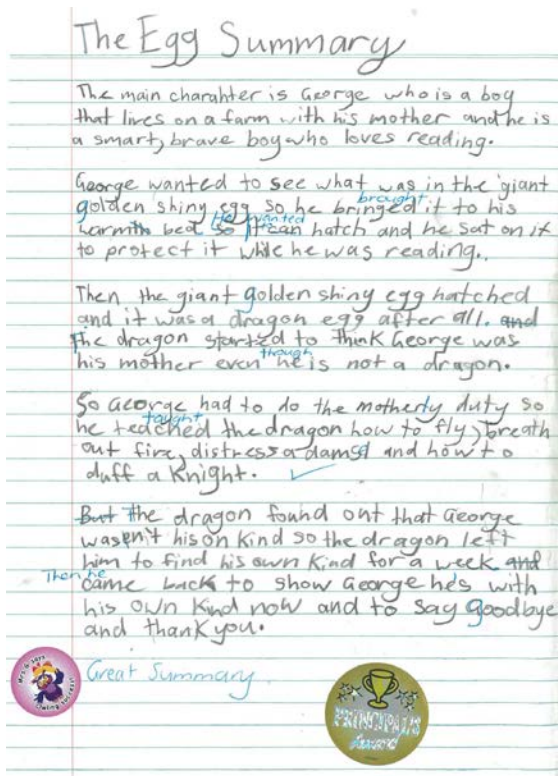 The Egg Summary
The main charahter is George who is a boy
that lives on a farm with his mother and he is
a smart, brave boy who loves reading.
George wanted to see what was in the giant
brought
golden shiny egg so he bringed it to his
He wanted
warmth bed so it can hatch and he sat on it
to protect it while he was reading.
Then the giant golden shiny egg hatched
and it was a dragon egg after all. and
The dragon started to think George was
though
his mother even he is not a dragon.
So George had to do the motherly duty so
tought
he teached the dragon how to fly, breath
out fire, distress a damsel and how to
duff a Knight.
But The dragon found out that George
wasn't his on kind so the dragon left
him to find his own kind for a week and
Then he
came back to show George he's with
his own kind now and to say goodbye
and thank you.
Great Summary.
PRINCIPAL'S
Award